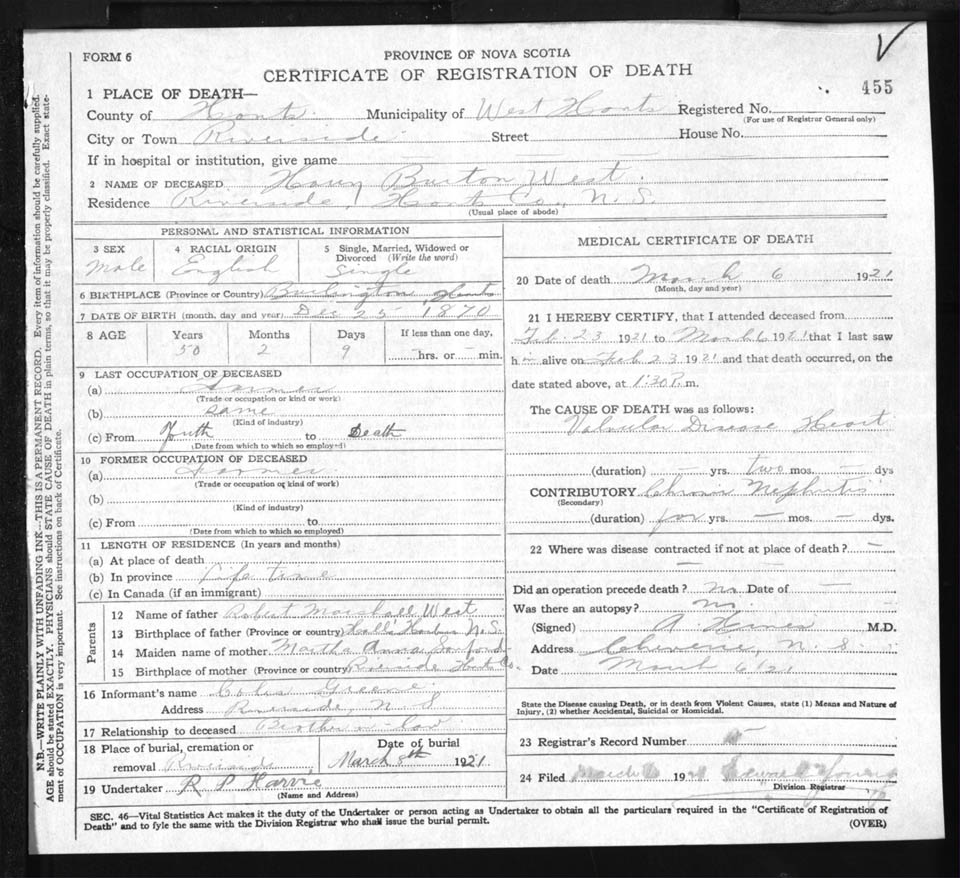 FORM 6
PROVINCE OF NOVA SCOTIA
CERTIFICATE OF REGISTRATION OF DEATH
455
1 PLACE OF DEATH—
County of Hants Municipality of West Hants Registered No.
(For use of Registrar General only)
City or Town Riverside Street House No.
If in hospital or institution, give name
2 NAME OF DECEASED Harry Burton West
Residence Riverside, Hants Co., N. S.
(Usual place of abode)
PERSONAL AND STATISTICAL INFORMATION
3 SEX 4 RACIAL ORIGIN 5 Single, Married, Widowed or
Divorced (Write the word)
Male English Single
6 BIRTHPLACE (Province or Country) Burlington, Hants
7 DATE OF BIRTH (month, day and year) Dec 25 1870
8 AGE Years Months Days If less than one day,
50 2 9 hrs. or min.
9 LAST OCCUPATION OF DECEASED
(a) Farmer
(Trade or occupation or kind or work)
(b) same
(Kind of industry)
(c) From Youth to Death
(Date from which to which so employed)
10 FORMER OCCUPATION OF DECEASED
(a) Farmer
(Trade or occupation or kind of work)
(b)
(Kind of industry)
(c) From to
(Date from which to which so employed)
11 LENGTH OF RESIDENCE (In years and months)
(a) At place of death
(b) In province Life time
(c) In Canada (if an immigrant)
Parents
12 Name of father Robert Marshall West
13 Birthplace of father (Province or country) Hall's Harbor N. S.
14 Maiden name of mother Martha Anna Sanford
15 Birthplace of mother (Province or country) Riverside Hants Co.
16 Informant's name Greene
Address Riverside, N. S
17 Relationship to deceased Brother in law
18 Place of burial, cremation or Date of burial
removal Riverside March 8th 1921
19 Undertaker R P Harvie
(Name and Address)
MEDICAL CERTIFICATE OF DEATH
20 Date of death March 6 1921
(Month, day and year)
21 I HEREBY CERTIFY, that I attended deceased from
Feb. 23 1921 to March 6 1921 that I last saw
him alive on Feb 23 1921 and that death occurred, on the
date stated above, at 1:30 P. m.
The CAUSE OF DEATH was as follows:
Valvular Disease Heart
(duration) — yrs. two mos. — dys
CONTRIBUTORY Chronic Nephritis
(Secondary)
(duration) for yrs. — mos. — dys.
22 Where was disease contracted if not at place of death? —
Did an operation precede death? No Date of —
Was there an autopsy? No
(Signed) A M.D.
Address Cheverie, N. S.
Date March 6/21
State the Disease causing Death, or in death from Violent Causes, state (1) Means and Nature of
Injury, (2) whether Accidental, Suicidal or Homicidal.
23 Registrar's Record Number
24 Filed March 1921
Division Registrar
SEC. 46—Vital Statistics Act makes it the duty of the Undertaker or person acting as Undertaker to obtain all the particulars required in the "Certificate of Registration of
Death" and to fyle the same with the Division Registrar who shall issue the burial permit.
(OVER)
N.B.—WRITE PLAINLY WITH UNFADING INK—THIS IS A PERMANENT RECORD. Every item of information should be carefully supplied.
AGE should be stated EXACTLY. PHYSICIANS should STATE CAUSE OF DEATH in plain terms, so that it may be properly classified. Exact state-
ment of OCCUPATION is very important. See instructions on back of Certificate.